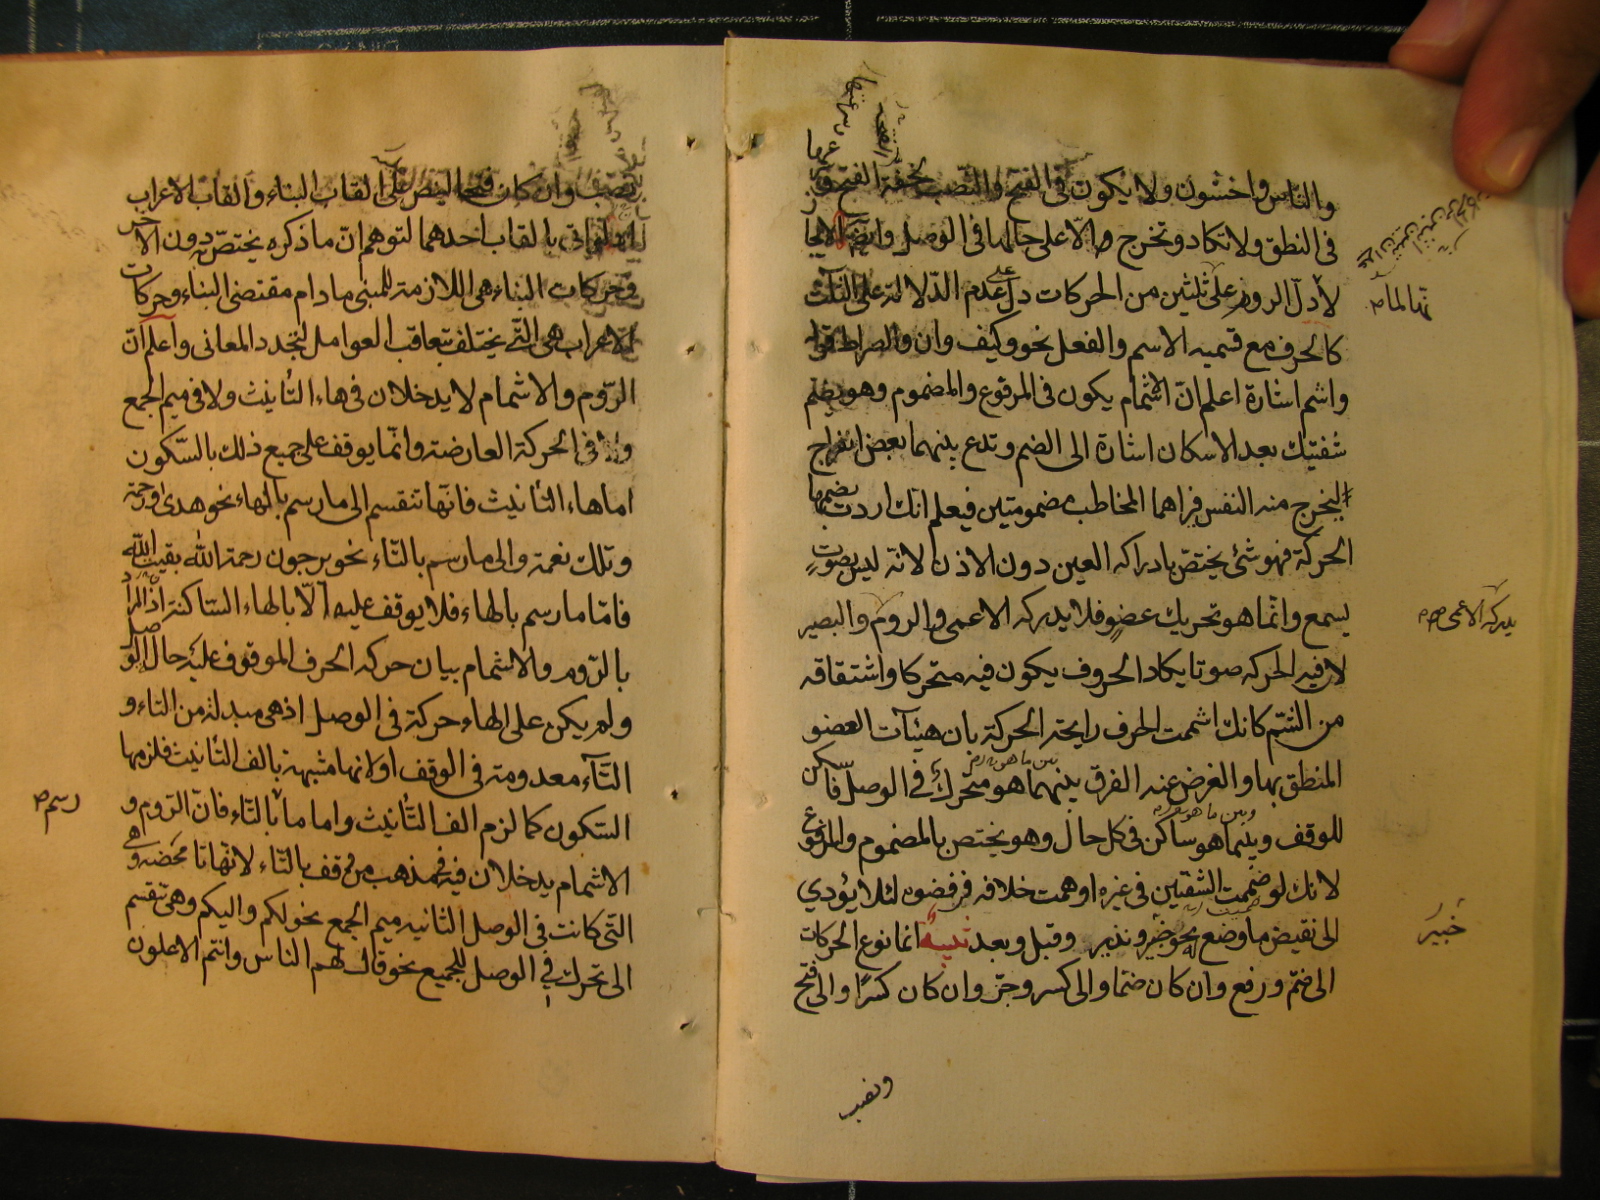 والناس واخشون ولا يكون فى الفتح والنصب لخفة الفتح
فى النطق ولا تكاد تخرج الا على حالها فى الوصل
لا دل الروم على ثلثين من الحركات دل على عدم الدلالة على الثلث
كالحرف مع قسميه الاسم والفعل نحو وكيف وان والصراط
واشم اشارة اعلم انّ الاشمام يكون فى المرفوع والمضموم وهو يضم
شفتيك بعد الاسكان اشارة الى الضم وتدع بينهما بعض انفراج
ليخرج منه النفس فيراهما المخاطب مضمومتين فيعلم انك اردت بضمهما
الحركة فهو شئ يختص بادراكه العين دون الاذن لانه ليس بصوت
يسمع وانما هو تحريك عضو فلا يدركه الاعمى والروم والبصير
لان فيه الحركه صوتا يكاد الحروف يكون فيه متحركا واشتقاقه
من الشم كانك اشممت الحرف رايحة الحركة بان هيئات العضو
المنطق بها والغرض عنه الفرق بينهما هو متحرك فى الوصل فاسكن
للوقف وبينما هو ساكن فى كل حال وهو يختص بالمضموم والمرفوع
لانك لو ضممت الشفتين فى غيره اوهمت خلافه فرفضوه لئلا يؤدي
الى نقيض ما وضع له نحو خير ونذير وقبل وبعد تنبيه انما نوع الحركات
الى ضم ورفع وان كان ضما والى كسر وجر وان كان كسرًا والى فتح
ونصب
تها لما
يدركه الاعمى
خبير
ونصب وان كان فتحا لينص على القاب البناء والقاب الاعراب
بالقاب احدهما لتوهم انّ ما ذكره يختص به دون الاخر
وحركات البناء هى اللازمة للمبنى مادام مقتضى البناء وحركات
الاعراب هى التى يختلف بتعاقب العوامل لتجدد المعانى واعلم ان
الرّوم والاشمام لا يدخلان فى هاء التأنيث ولا فى ميم الجمع
ولا فى الحركة العارضة وانما يوقف على جميع ذلك بالسكون
اما هاء التأنيث فانها تنقسم الى ما رسم بالهاء نحو هدى ورحمة
وتلك نعمة والى ما رسم بالتاء نحو يرجون رحمة الله بقيت الله
فاما ما رسم بالهاء فلا يوقف عليه الا بالهاء الساكنة اذ المراد
بالروم والاشمام بيان حركه الحرف الموقوف عليه حال الوصل
ولم يكن على الهاء حركة فى الوصل اذ هى مبدلة من التاء و
التاء معدومة فى الوقف اولانها مشبهة بالف التأنيث فلزمها
السكون كما لزم الف التأنيث واما ما بالتاء فان الروم و
الاشمام يدخلان فيه فى مذهب من وقف بالتاء لانها تا محضه وهى
التى كانت فى الوصل الثانيه ميم الجمع نحو لكم واليكم وهى تنقسم
الى تحرك فى الوصل للجميع نحو قال لهم الناس وانتم الاعلون
رسم